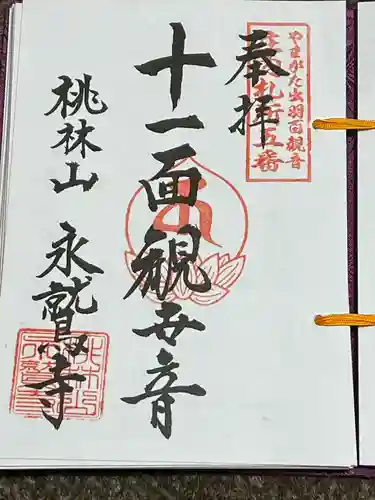 やまがた出羽百観音
札所五番
奉拝
十一面観世音
桃林山 永鷲寺